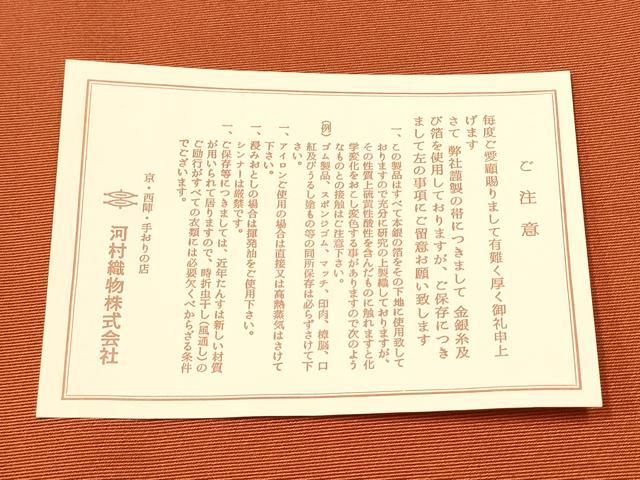 ご注意
毎度ご愛顧賜りまして有難く厚く御礼申上
げます
さて 弊社謹製の帯につきまして 金銀糸及
び箔を使用しておりますが、ご保存につき
まして左の事項にご留意お願い致します
一、この製品はすべて本銀の箔をその下地に使用致して
おりますので充分に研究の上製織しておりますが、
その性質上硫黄性酸性を含んだものに触れますと化
学変化をおこし変色する事がありますので次のよう
なものとの接触はご注意下さい。
(例)ゴム製品、スポンジゴム、マッチ、印肉、樟脳、口
紅及びうるし塗もの等の同所保存は必らずさけて下
さい。
一、アイロンご使用の場合は直接又は高熱蒸気はさけて
下さい。
一、浸みおとしの場合は揮発油をご使用下さい。
シンナーは厳禁です。
一、ご保存等につきましては、近年たんすは新しい材質
が用いられて居りますので、時折虫干し(風通し)の
ご励行がすべての衣類には必要欠くべからざる条件
でございます。
京・西陣・手おりの店
河村織物株式会社